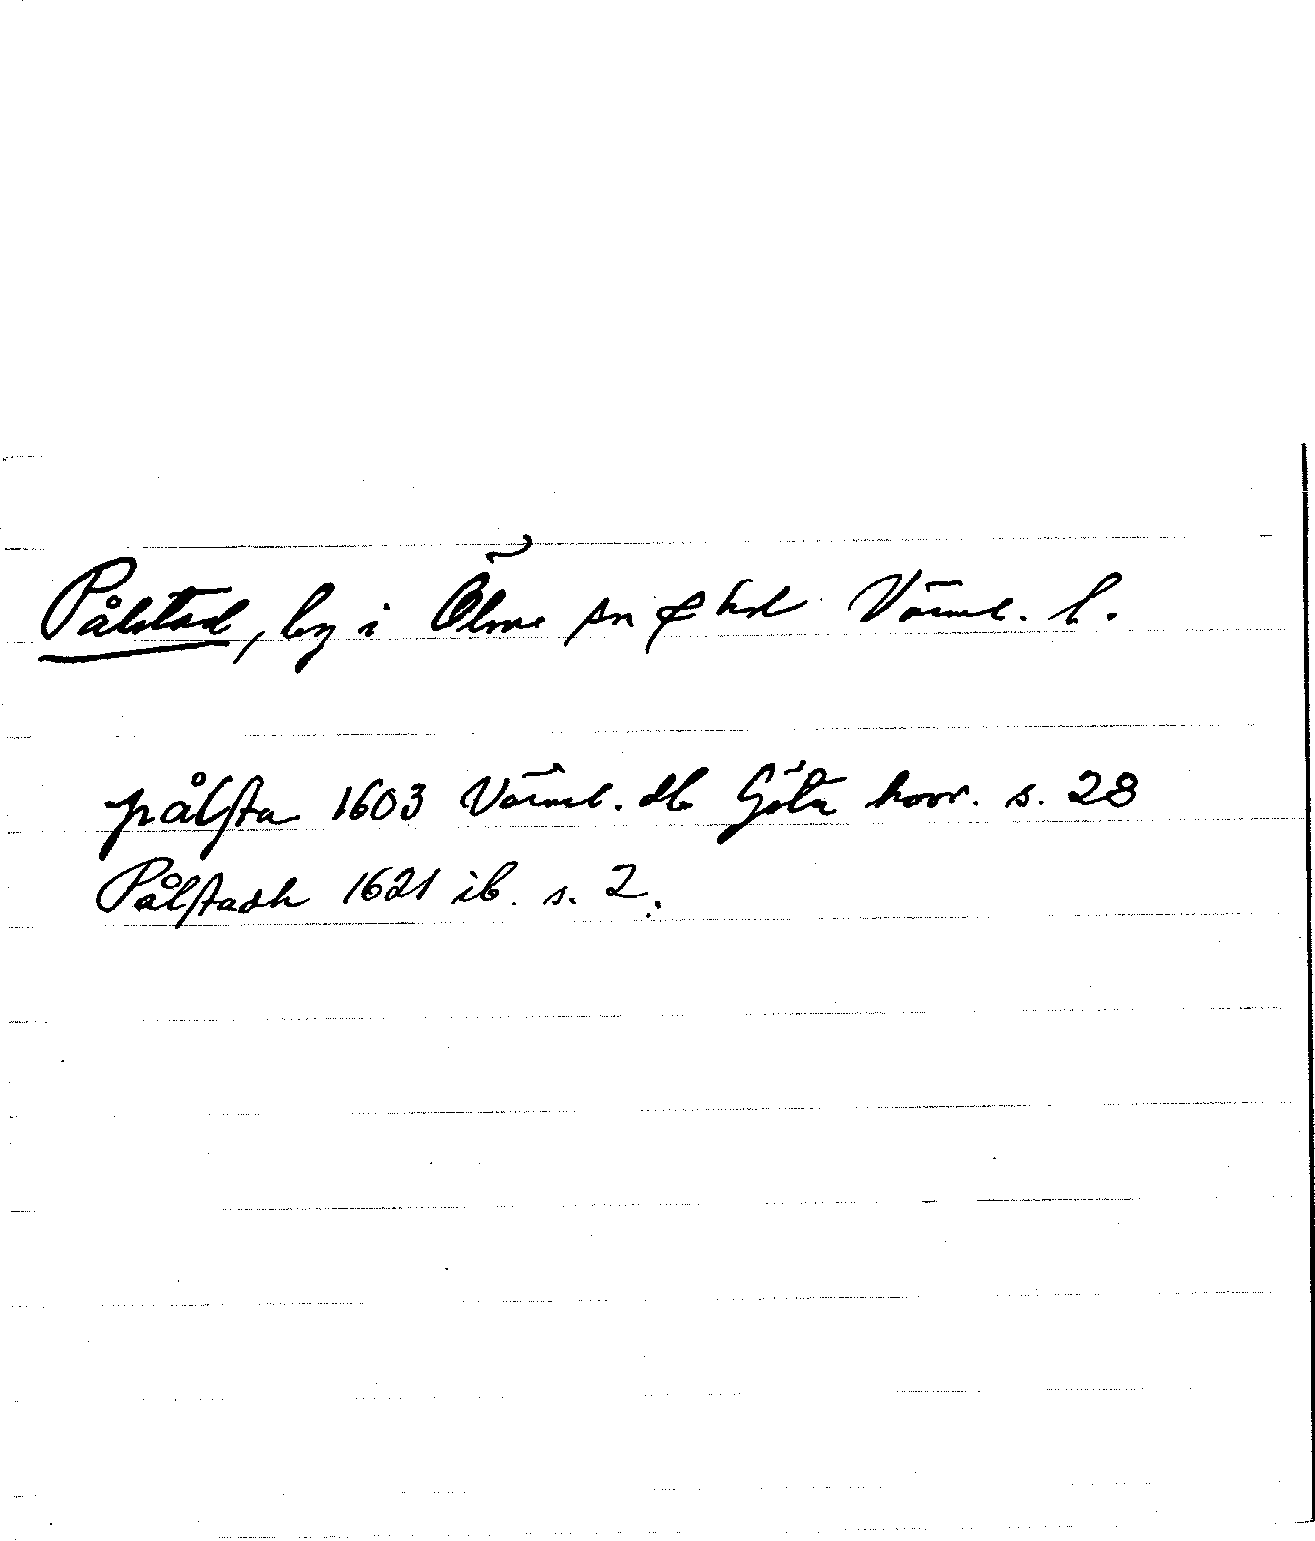 Pålstad, by i Ölme sn & hd Värml. l.
pålsta 1603 Värml. db Göta hovr. s. 28
Pålstadh 1621 ib. s. 2.